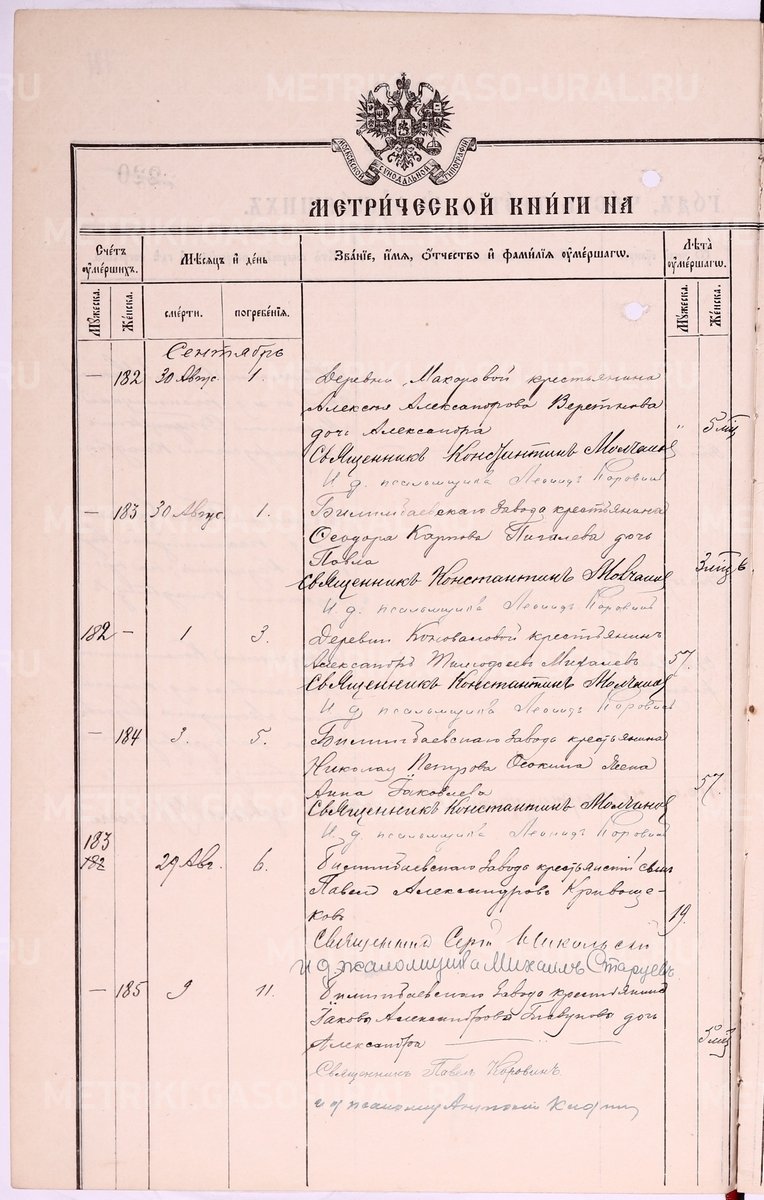 METRIKI.GASO-URAL.RU
МОСКОВСКОЙ СѴНОДАЛЬНОЙ ТИПОГРАФІИ
МЕТРИ́ЧЕСКОЙ КНИ́ГИ НА
Сче́тъ ᲂу҆ме́ршихъ.
Мѣ́сяцъ и҆ де́нь
Зва́нїе, и҆́мѧ, ѻ҆́тчество и҆ фамилїѧ ᲂу҆ме́ршагѡ.
Лѣ́та ᲂу҆ме́ршагѡ.
Мꙋ́жеска.
Же́нска.
сме́рти.
погребе́нїѧ.
Мꙋ́жеска.
Же́нска.
Сентябрь
— 182 30 Авгус. 1. Деревни Макаровой крестьянина
Алексѣя Александрова
дочь Александра " 5 мѣц
Священникъ Константинъ Молчанов
И. д. псаломщика Леонидъ Коровинъ
— 183 30 Авгус. 1. Билимбаевскаго завода крестьянина
Ѳеодора Карпова Пигалева дочь
Павла 3 мѣц
Священникъ Константинъ Молчанов
И. д. псаломщика Леонидъ Коровинъ
182 — 1 3. Деревни Коноваловой крестьянинъ
Александръ Тимофеевъ Михалевъ 57.
Священникъ Константинъ Молчанов
И. д. псаломщика Леонидъ Коровинъ
— 184 3. 5. Билимбаевскаго завода крестьянина
Николая Петрова Осокина жена
Анна Іаковлева 57.
Священникъ Константинъ Молчанов
И. д. псаломщика Леонидъ Коровинъ
183
182 29 Авг. 6. Билимбаевскаго завода крестьянскій сынъ
Павелъ Александровъ Кривоще-
ковъ 19.
Священникъ Сергій Никольскій
и д псаломщика Михаилъ Старцевъ
— 185 9 11. Билимбаевскаго завода крестьянина
Іакова Александрова дочь
Александра 5 мѣц
Священникъ Павелъ Коровинъ
и д псаломщ